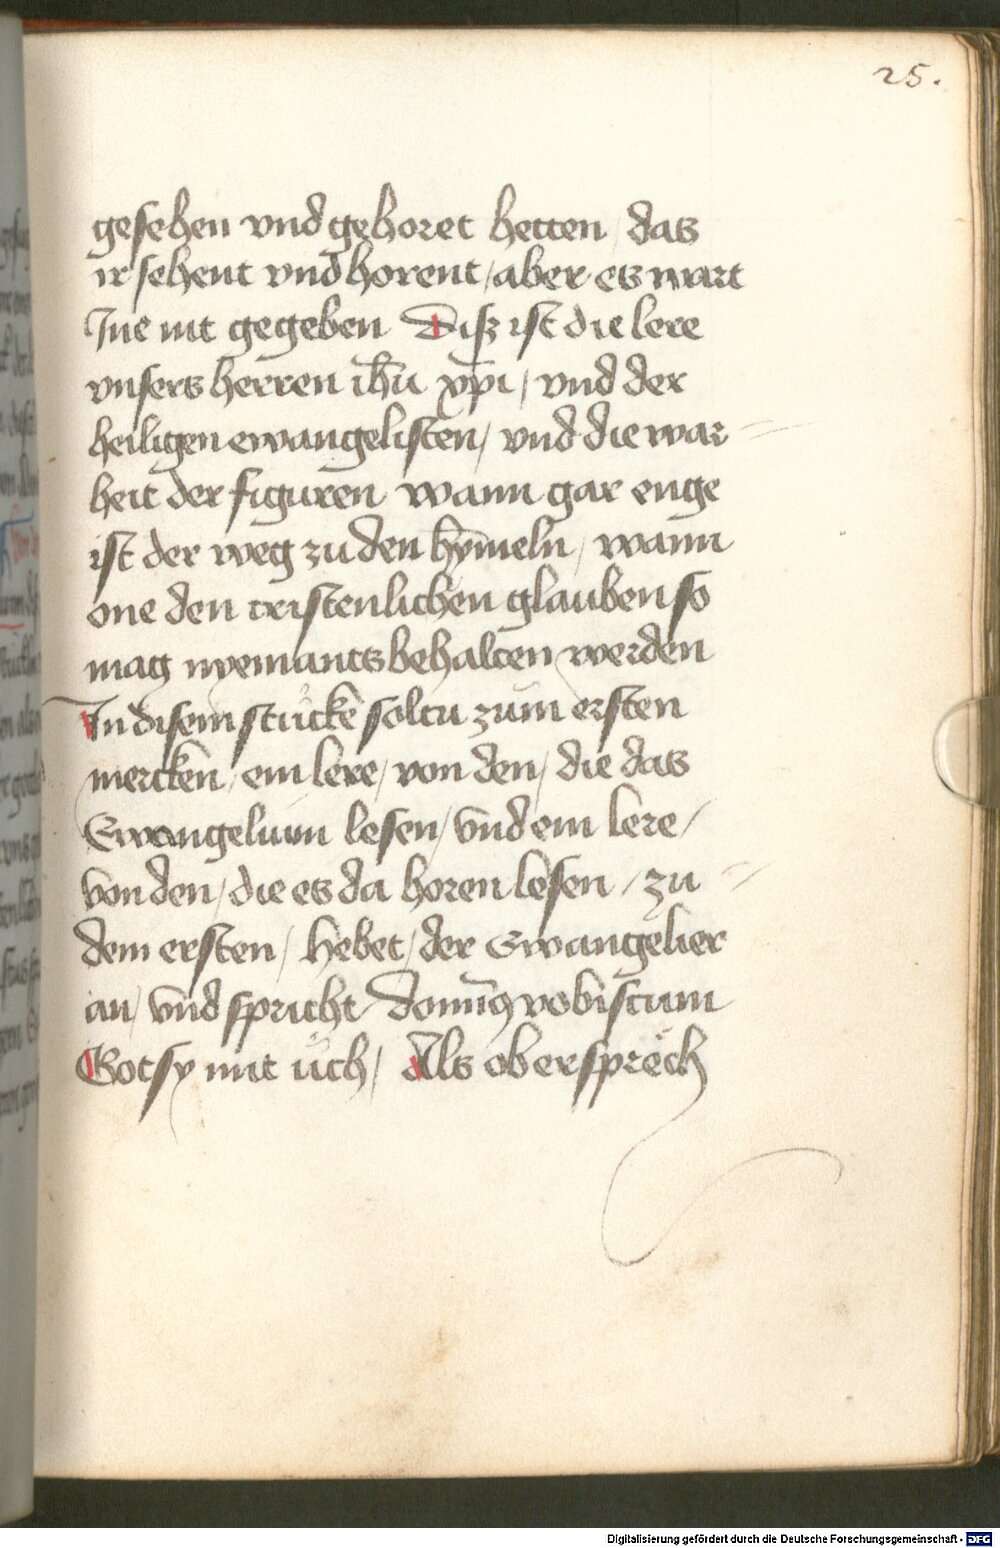 25.
gesehen vnd gehoret hetten / das
ir sehent vnd horent / aber es wart
Jne nit gegeben Disz ist die lere
vnsers herren ihū xp̄i / vnd der
heiligen ewangelisten / vnd die war=
heit der figuren wann gar enge
ist der weg zu den hȳmeln / wann
one den cristenlichen glauben so
mag nyemants behalten werden
In disem stůcke soltu zum ersten
mercken / ein lere / von den / die das
Ewangelium lesen / vnd ein lere /
von den / die es da horen lesen / zu=
dem ersten / hebet / der Ewangelier
an / vnd spricht Domīꝯ vobiscum
Got sy mit ůch / Als ob er sprech
Digitalisierung gefördert durch die Deutsche Forschungsgemeinschaft - DFG